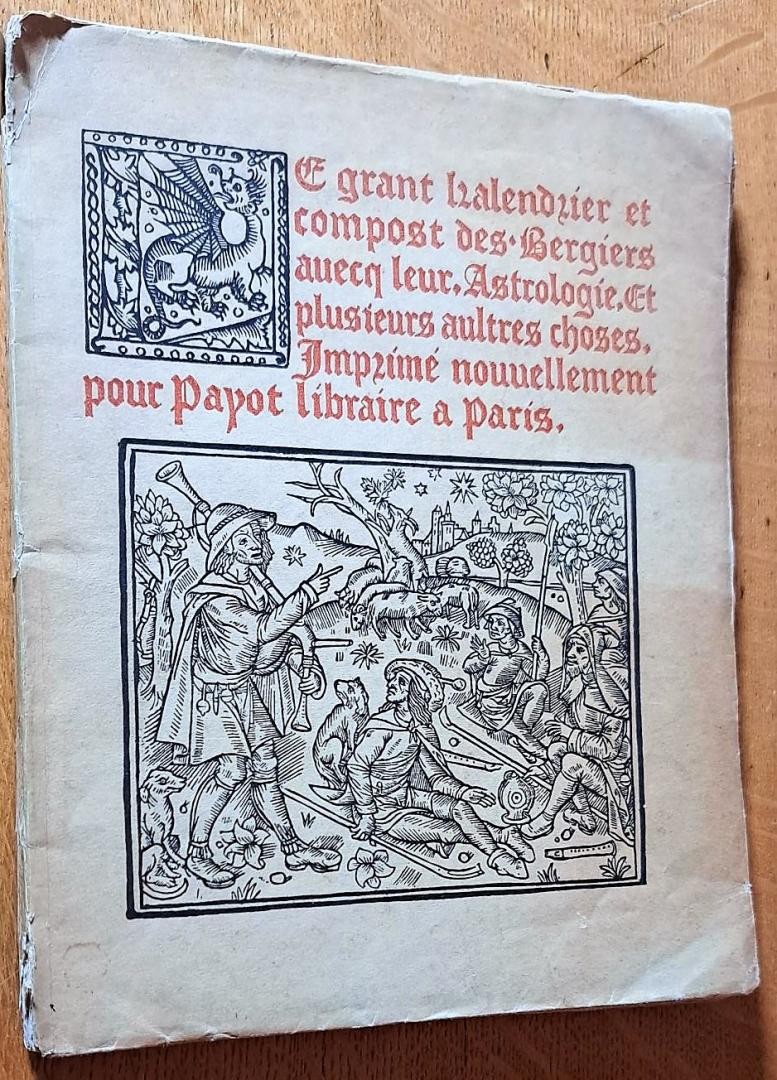 LE grant kalendrier et
compost des Bergiers
auecq leur. Astrologie. Et
plusieurs aultres choses.
Imprimé nouuellement
pour Payot libraire a Paris.